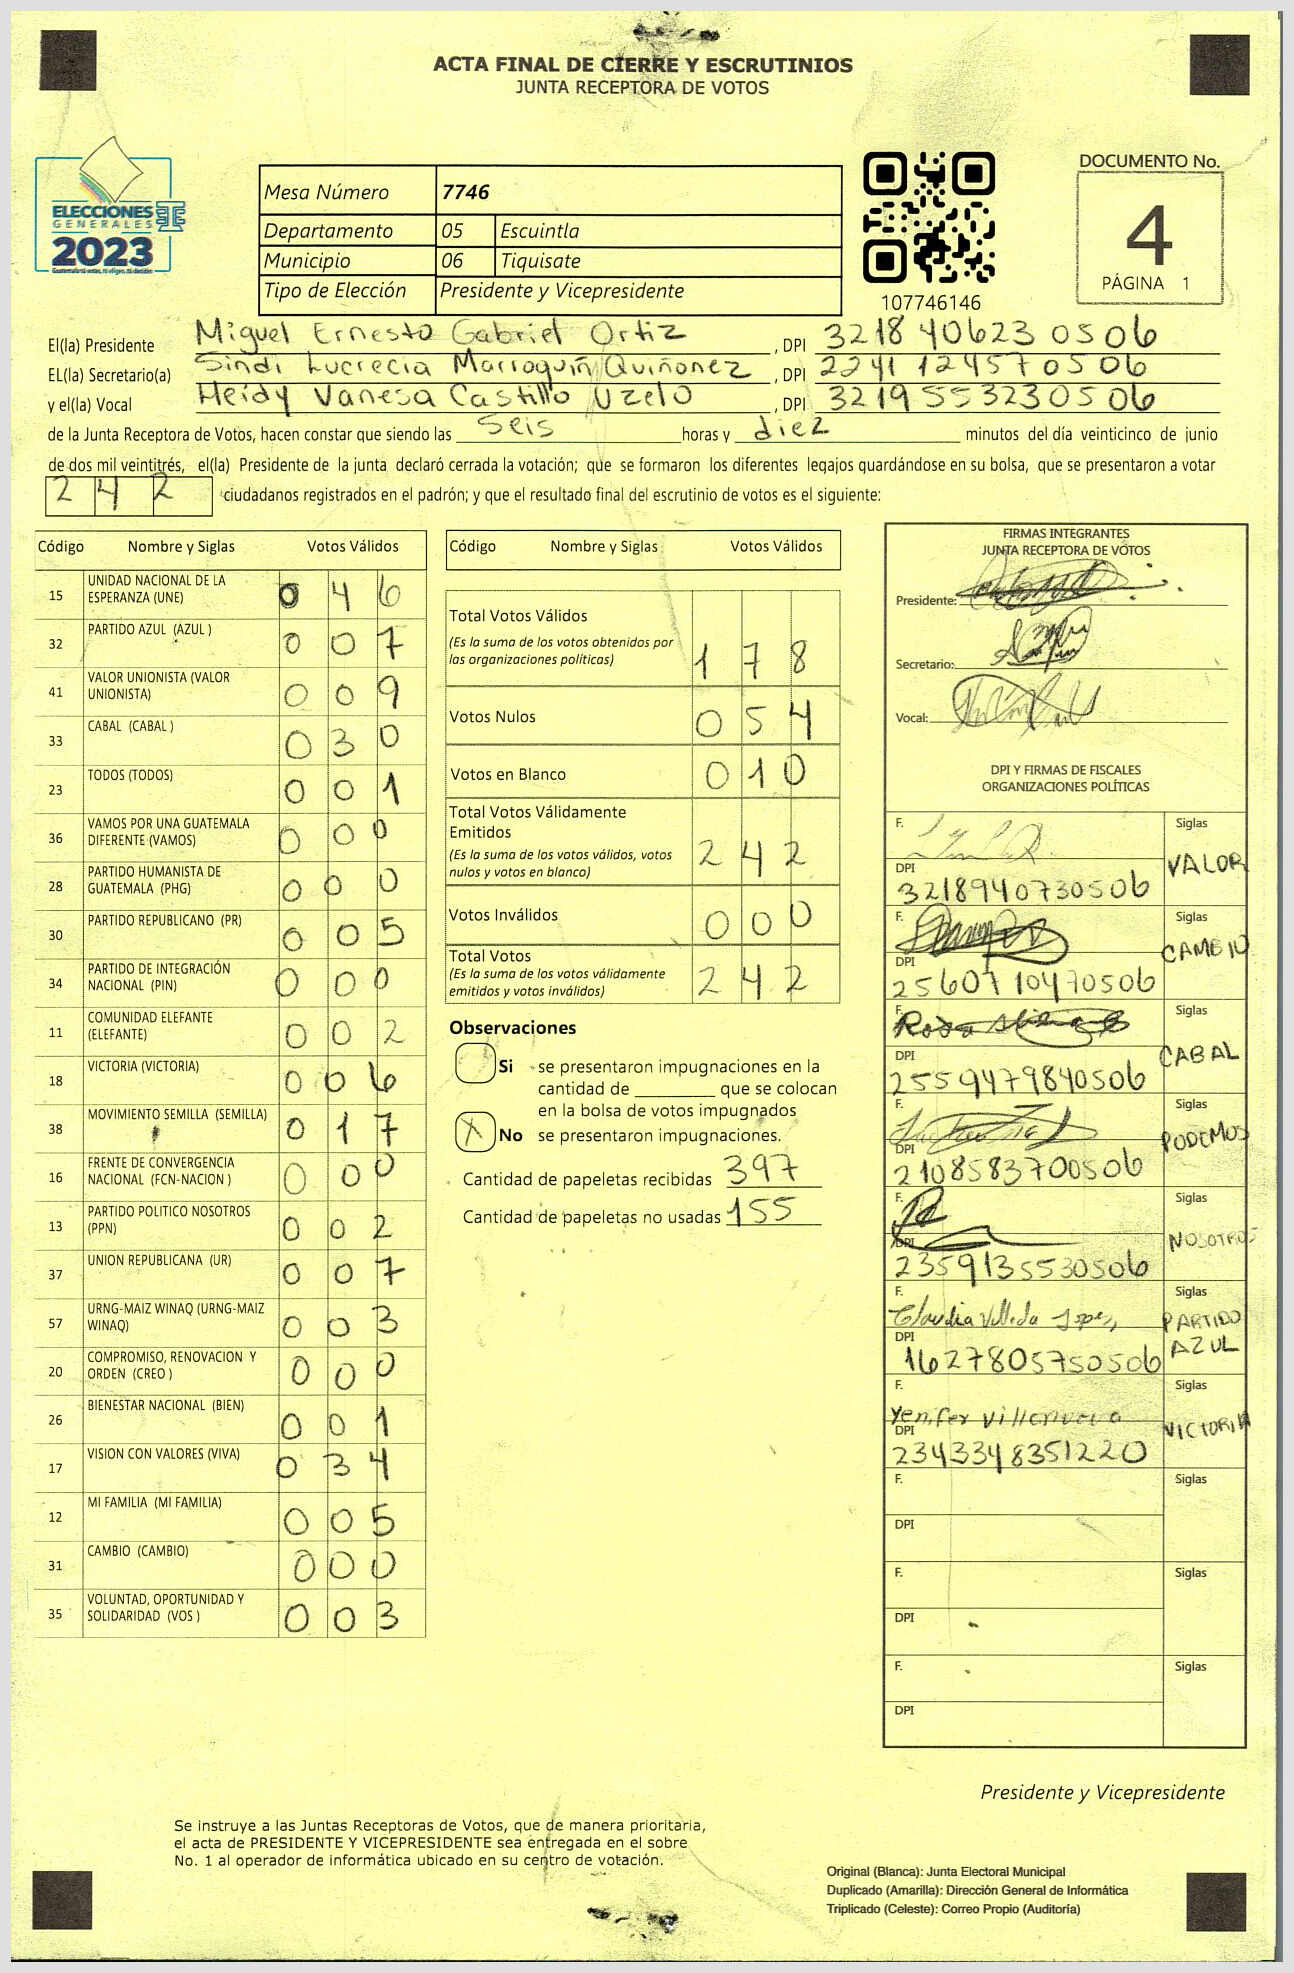 ACTA FINAL DE CIERRE Y ESCRUTINIOS
JUNTA RECEPTORA DE VOTOS
ELECCIONES
GENERALES
2023
Mesa Número 7746
Departamento 05 Escuintla
Municipio 06 Tiquisate
Tipo de Elección Presidente y Vicepresidente
107746146
DOCUMENTO No.
4
PÁGINA 1
El(la) Presidente Miguel Ernesto Gabriel Ortiz , DPI 3218406230506
EL(la) Secretario(a) Sindi Lucrecia Marroquín Quiñonez , DPI 2241124570506
y el(la) Vocal Heidy Vanesa Castillo Uzelo , DPI 3219553230506
de la Junta Receptora de Votos, hacen constar que siendo las seis horas y diez minutos del día veinticinco de junio
de dos mil veintitrés, el(la) Presidente de la junta declaró cerrada la votación; que se formaron los diferentes legajos guardándose en su bolsa, que se presentaron a votar
242 ciudadanos registrados en el padrón; y que el resultado final del escrutinio de votos es el siguiente:
Código Nombre y Siglas Votos Válidos
15 UNIDAD NACIONAL DE LA ESPERANZA (UNE) 0 4 6
32 PARTIDO AZUL (AZUL ) 0 0 7
41 VALOR UNIONISTA (VALOR UNIONISTA) 0 0 9
33 CABAL (CABAL ) 0 3 0
23 TODOS (TODOS) 0 0 1
36 VAMOS POR UNA GUATEMALA DIFERENTE (VAMOS) 0 0 0
28 PARTIDO HUMANISTA DE GUATEMALA (PHG) 0 0 0
30 PARTIDO REPUBLICANO (PR) 0 0 5
34 PARTIDO DE INTEGRACIÓN NACIONAL (PIN) 0 0 0
11 COMUNIDAD ELEFANTE (ELEFANTE) 0 0 2
18 VICTORIA (VICTORIA) 0 0 6
38 MOVIMIENTO SEMILLA (SEMILLA) 0 1 7
16 FRENTE DE CONVERGENCIA NACIONAL (FCN-NACION ) 0 0 0
13 PARTIDO POLITICO NOSOTROS (PPN) 0 0 2
37 UNION REPUBLICANA (UR) 0 0 7
57 URNG-MAIZ WINAQ (URNG-MAIZ WINAQ) 0 0 3
20 COMPROMISO, RENOVACION Y ORDEN (CREO ) 0 0 0
26 BIENESTAR NACIONAL (BIEN) 0 0 1
17 VISION CON VALORES (VIVA) 0 3 4
12 MI FAMILIA (MI FAMILIA) 0 0 5
31 CAMBIO (CAMBIO) 0 0 0
35 VOLUNTAD, OPORTUNIDAD Y SOLIDARIDAD (VOS ) 0 0 3
Código Nombre y Siglas Votos Válidos
Total Votos Válidos
(Es la suma de los votos obtenidos por
las organizaciones políticas) 1 7 8
Votos Nulos 0 5 4
Votos en Blanco 0 1 0
Total Votos Válidamente
Emitidos
(Es la suma de los votos válidos, votos
nulos y votos en blanco) 2 4 2
Votos Inválidos 0 0 0
Total Votos
(Es la suma de los votos válidamente
emitidos y votos inválidos) 2 4 2
Observaciones
Si se presentaron impugnaciones en la
cantidad de ________ que se colocan
en la bolsa de votos impugnados
X No se presentaron impugnaciones.
Cantidad de papeletas recibidas 397
Cantidad de papeletas no usadas 155
FIRMAS INTEGRANTES
JUNTA RECEPTORA DE VOTOS
Presidente:
Secretario:
Vocal:
DPI Y FIRMAS DE FISCALES
ORGANIZACIONES POLÍTICAS
F. Siglas
VALOR
DPI
3218940730506
F. Siglas
CAMBIO
DPI
2560710470506
F. Rosa Siglas
CABAL
DPI
2559479840506
F. Siglas
PODEMOS
DPI
2108583700506
F. Siglas
NOSOTROS
DPI
2359135530506
F. Claudia Villeda Lopez Siglas
PARTIDO
AZUL
DPI
1627805750506
F. Yenifer Villanueva Siglas
VICTORIA
DPI
2343348351220
F. Siglas
DPI
F. Siglas
DPI
F. Siglas
DPI
Presidente y Vicepresidente
Se instruye a las Juntas Receptoras de Votos, que de manera prioritaria,
el acta de PRESIDENTE Y VICEPRESIDENTE sea entregada en el sobre
No. 1 al operador de informática ubicado en su centro de votación.
Original (Blanca): Junta Electoral Municipal
Duplicado (Amarilla): Dirección General de Informática
Triplicado (Celeste): Correo Propio (Auditoría)